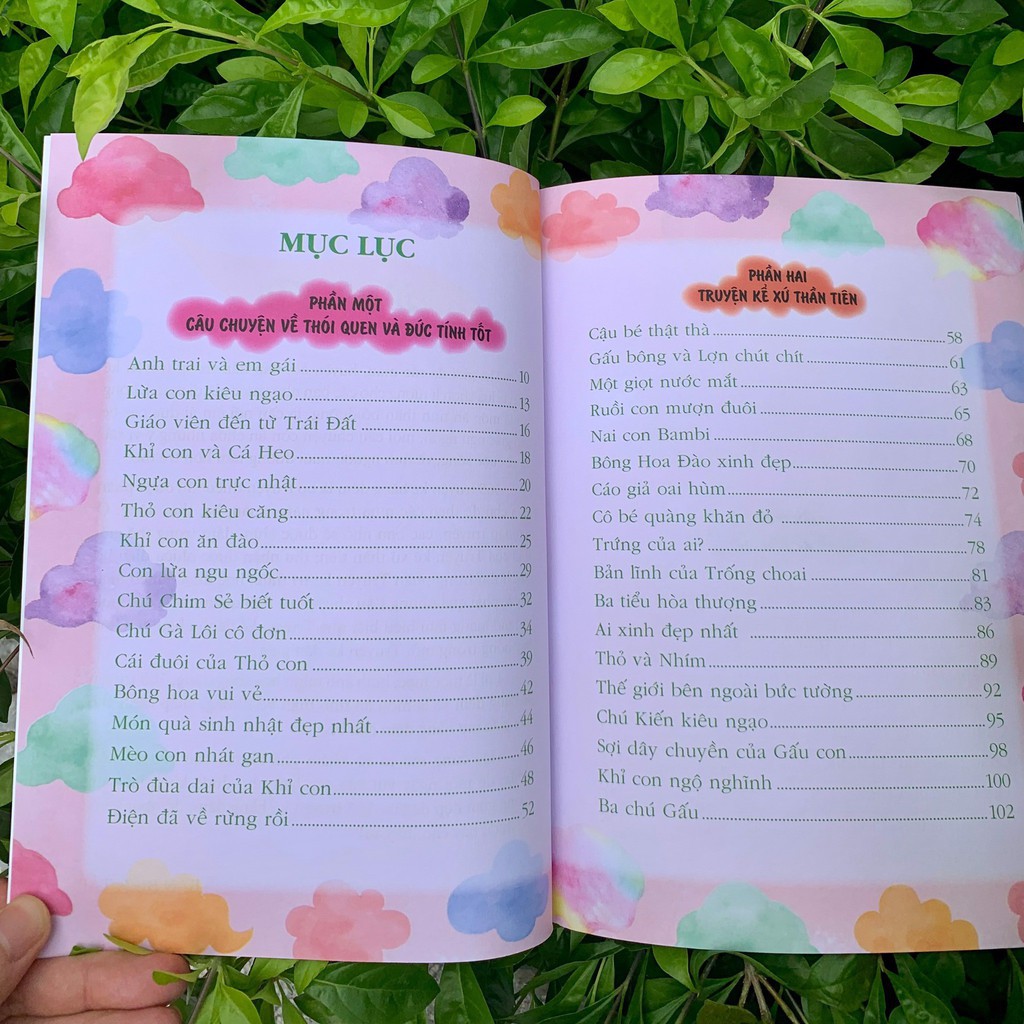 MỤC LỤC
PHẦN MỘT
CÂU CHUYỆN VỀ THÓI QUEN VÀ ĐỨC TÍNH TỐT
Anh trai và em gái ........ 10
Lừa con kiêu ngạo ........ 13
Giáo viên đến từ Trái Đất ........ 16
Khỉ con và Cá Heo ........ 18
Ngựa con trực nhật ........ 20
Thỏ con kiêu căng ........ 22
Khỉ con ăn đào ........ 25
Con lừa ngu ngốc ........ 29
Chú Chim Sẻ biết tuốt ........ 32
Chú Gà Lôi cô đơn ........ 34
Cái đuôi của Thỏ con ........ 39
Bông hoa vui vẻ ........ 42
Món quà sinh nhật đẹp nhất ........ 44
Mèo con nhát gan ........ 46
Trò đùa dai của Khỉ con ........ 48
Điện đã về rừng rồi ........ 52
PHẦN HAI
TRUYỆN KỂ XỨ THẦN TIÊN
Cậu bé thật thà ........ 58
Gấu bông và Lợn chút chít ........ 61
Một giọt nước mắt ........ 63
Ruồi con mượn đuôi ........ 65
Nai con Bambi ........ 68
Bông Hoa Đào xinh đẹp ........ 70
Cáo giả oai hùm ........ 72
Cô bé quàng khăn đỏ ........ 74
Trứng của ai? ........ 78
Bản lĩnh của Trống choai ........ 81
Ba tiểu hòa thượng ........ 83
Ai xinh đẹp nhất ........ 86
Thỏ và Nhím ........ 89
Thế giới bên ngoài bức tường ........ 92
Chú Kiến kiêu ngạo ........ 95
Sợi dây chuyền của Gấu con ........ 98
Khỉ con ngộ nghĩnh ........ 100
Ba chú Gấu ........ 102